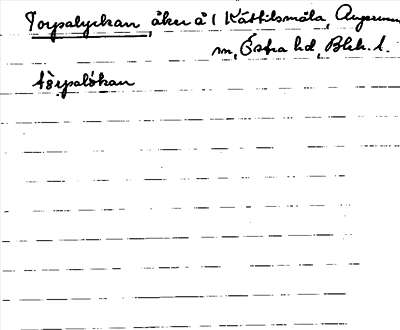 Torpalyckan, åker å 1 Kättilsmåla, Augerum
m, Östra hd, Blek. l.
tòrpalókan